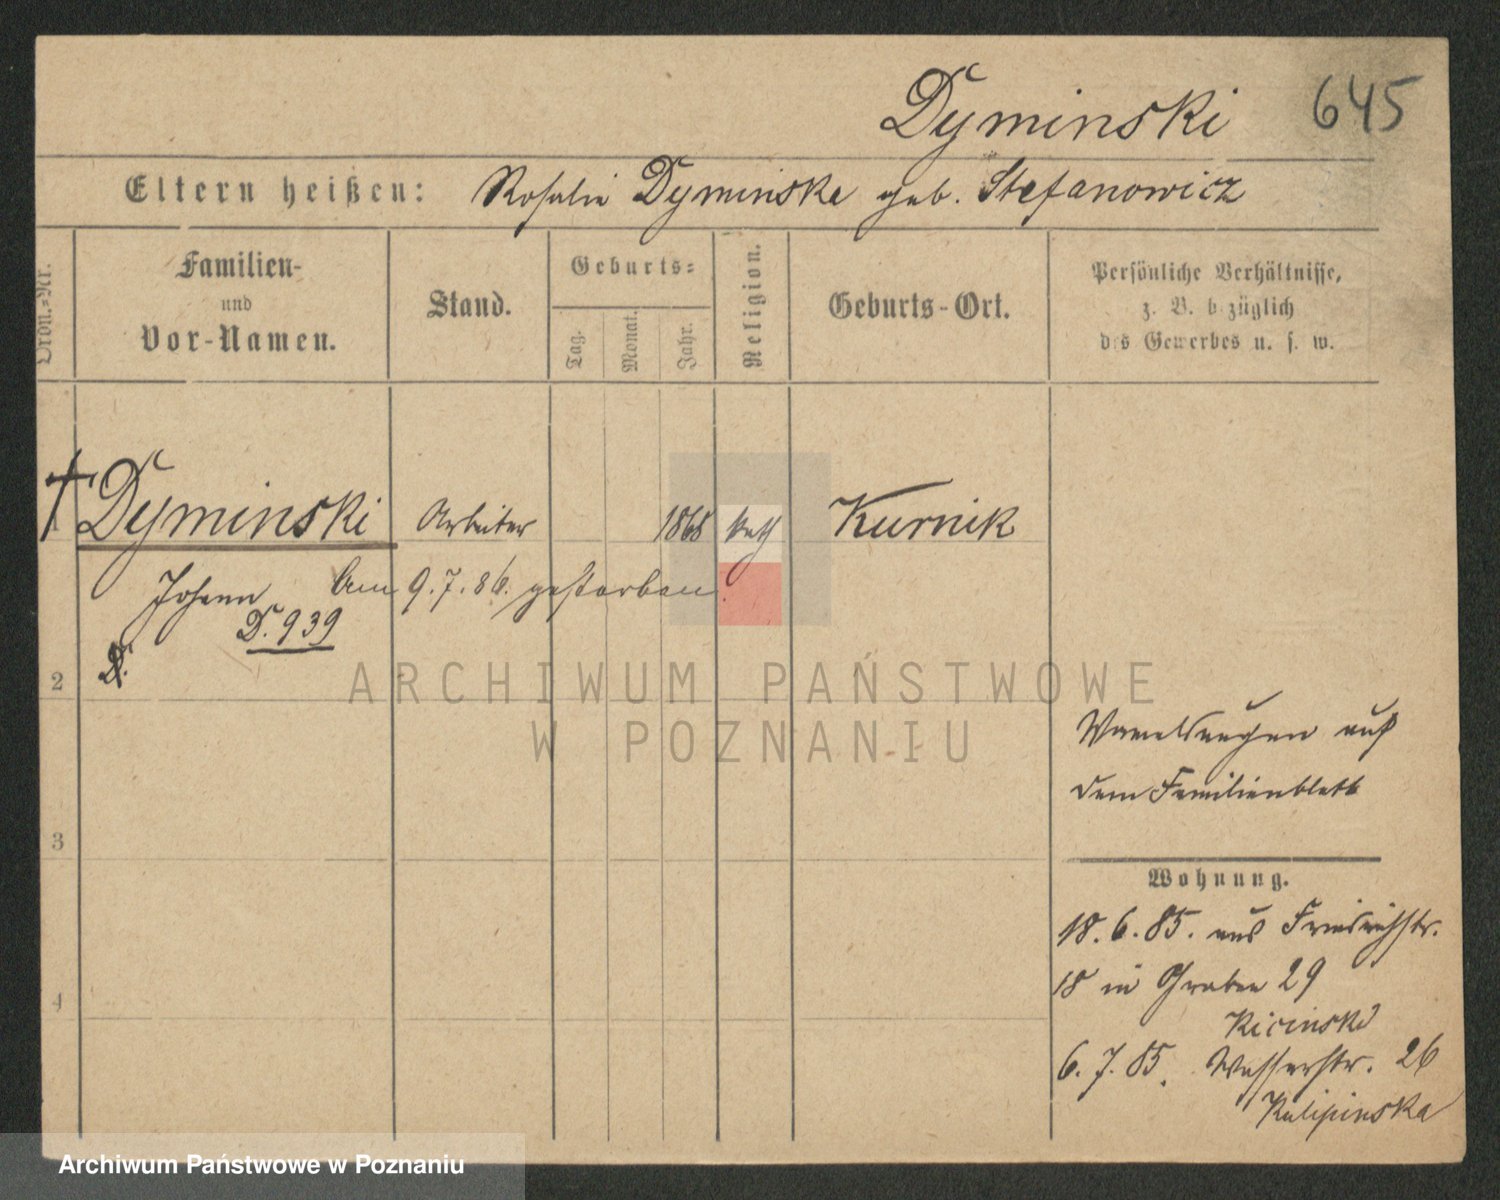 Dyminski 645
Eltern heißen: Rosalie Dyminska geb. Stefanowicz
Ordn.-Nr.
Familien-
und
Vor-Namen.
Stand.
Geburts-
Tag.
Monat.
Jahr.
Religion.
Geburts-Ort.
Persönliche Verhältnisse,
z. B. bezüglich
des Gewerbes u. s. w.
† Dyminski Arbeiter 1868 kath Kurnik
Johann Am 9.7.86. gestorben.
D. 939
D.
2
ARCHIWUM PAŃSTWOWE
W POZNANIU
auf
dem Familienblatt
3
Wohnung.
18. 6. 85. aus Friedrichstr.
18 in Graben 29
4
Kicinski
6. 7. 85. Wasserstr. 26
Kulipinska
Archiwum Państwowe w Poznaniu